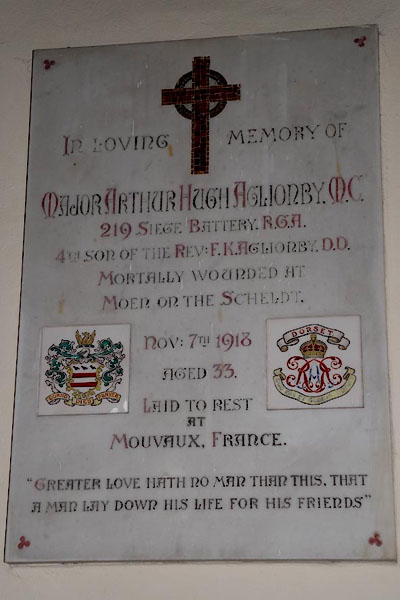 In loving memory of
Major Arthur Hugh Aglionby. M.C.
219 Siege Battery. R.G.A.
4th son of the Rev: F.K. Aglionby. D.D.
Mortally wounded at
Moen on the Scheldt.
Nov: 7th 1918
aged 33.
Laid to rest
at
Mouvaux, France.
DORSET
"Greater love hath no man than this, that
a man lay down his life for his friends"